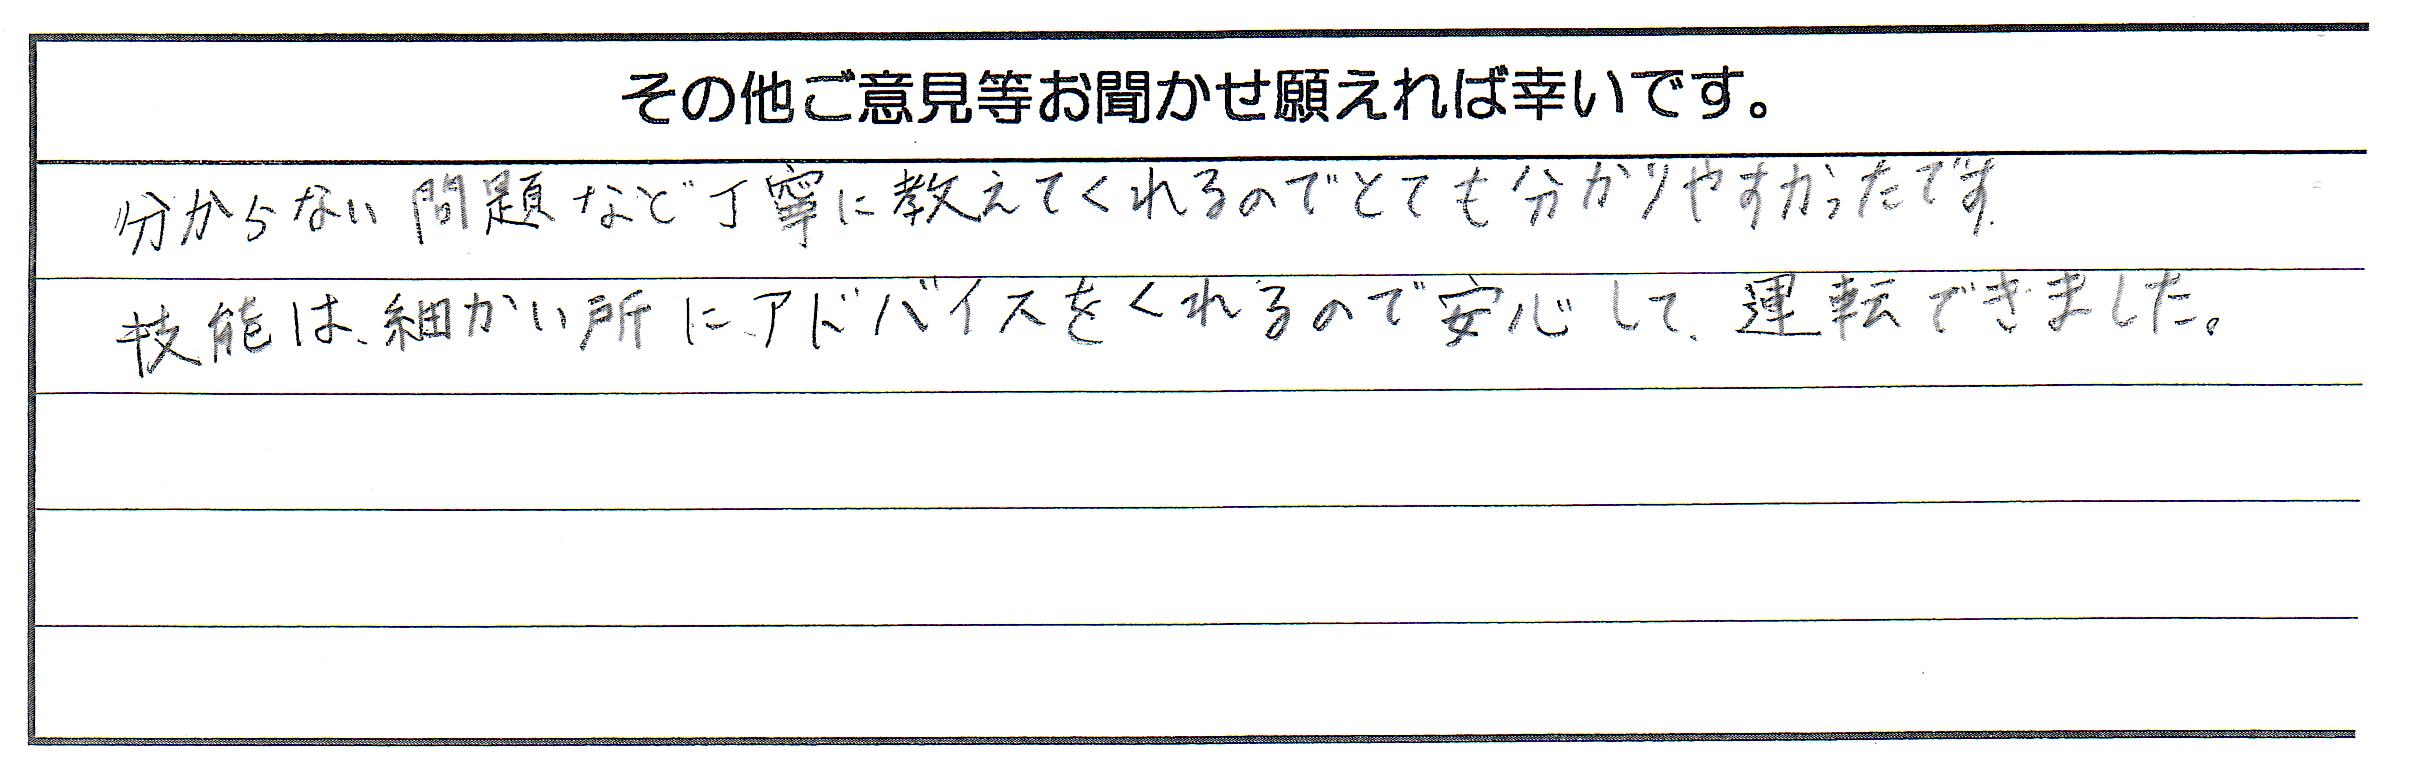 その他ご意見等お聞かせ願えれば幸いです。
分からない問題など丁寧に教えてくれるのでとても分かりやすかったです.
技能は、細かい所に、アドバイスをくれるので安心して、運転できました。